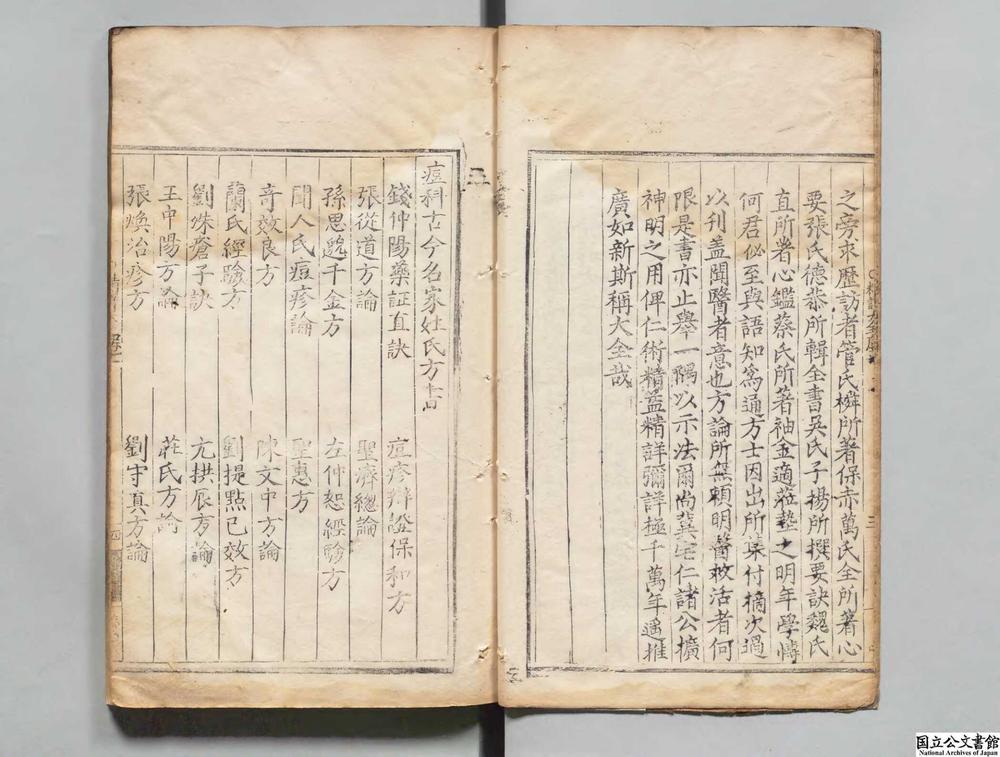 之旁求歷訪者管氏橓所著保赤萬氏全所著心
要張氏德恭所輯全書吳氏子揚所撰要訣魏氏
直所著心鑑蔡氏所著袖金適蒞塾之明年學博
何君必至與語知為通方士因出所集付摘次過
以刋盖聞醫者意也方論所無頼明醫救活者何
限是書亦止舉一隅以示法爾尚冀宅仁諸公擴
神明之用俾仁術精益精詳彌詳極千萬年遥推
廣如新斯稱大全哉
痘科古今名家姓氏方
錢仲陽藥証直訣 痘疹辯證保和方
張從道方論 聖濟總論
孫思邈千金方 左仲恕經驗方
聞人氏痘疹論 聖惠方
奇效良方 陳文中方論
蘭氏經驗方 劉提點已效方
劉洙瘡子訣 亢拱辰方論
王中陽方論 莊氏方論
張煥治疹方 劉守真方論
国立公文書館
National Archives of Japan